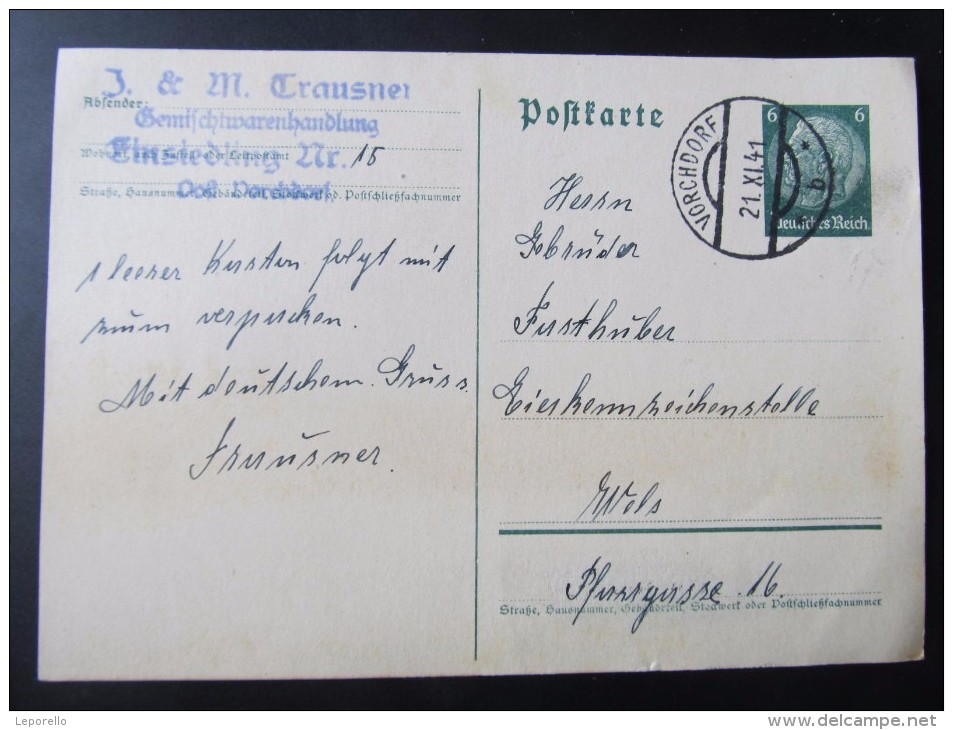 J. & M. Trausner
Absender:
Gemischtwarenhandlung
Einsiedling Nr. 15
Wohnort, auch Zustell- oder Leitpostamt
Post Vorchdorf
Straße, Hausnummer, Gebäudeteil, Stockwerk od. Postschließfachnummer
1 leerer Kasten folgt mit
zum verpacken.
Mit deutschem Gruss.
Trausner.
Postkarte
6 6
Deutsches Reich
VORCHDORF
21. XI. 41
* b *
Herrn
Gebrüder
Fusthuber
Eierkennzeichenstelle
Wels
Pfarrgasse 16.
Straße, Hausnummer, Gebäudeteil, Stockwerk oder Postschließfachnummer
Leporello
www.delcampe.net